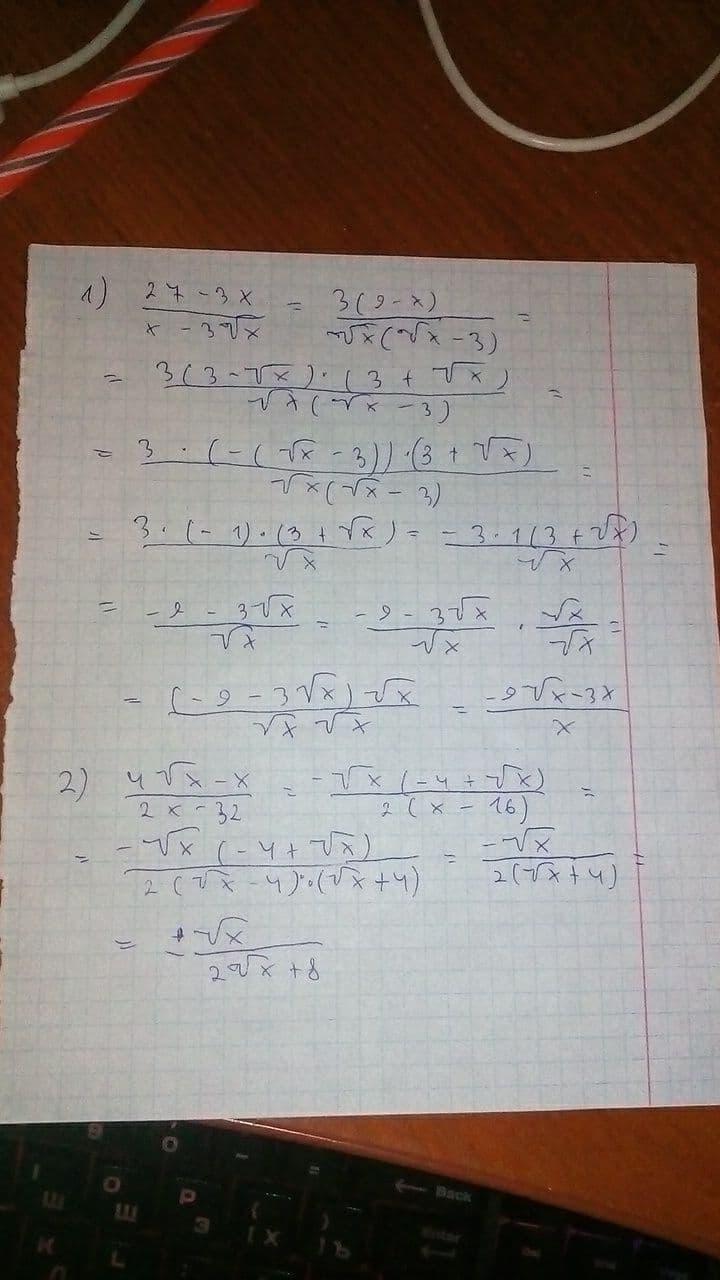 1) (27 - 3x)/(x - 3√x) = 3(9 - x)/(√x(√x - 3)) =
= 3(3 - √x)·(3 + √x)/(√x(√x - 3)) =
= 3·(-(√x - 3))·(3 + √x)/(√x(√x - 3)) =
= 3·(-1)·(3 + √x)/√x = -3·1(3 + √x)/√x =
= (-9 - 3√x)/√x = (-9 - 3√x)/√x · √x/√x =
= (-9 - 3√x)√x/(√x √x) = (-9√x - 3x)/x
2) (4√x - x)/(2x - 32) = -√x(-4 + √x)/(2(x - 16)) =
= -√x(-4 + √x)/(2(√x - 4)·(√x + 4)) = -√x/(2(√x + 4)) =
= - √x/(2√x + 8)
9 O - = Back
І Ш O Щ P З { [ Х } ] Ъ Enter
К L